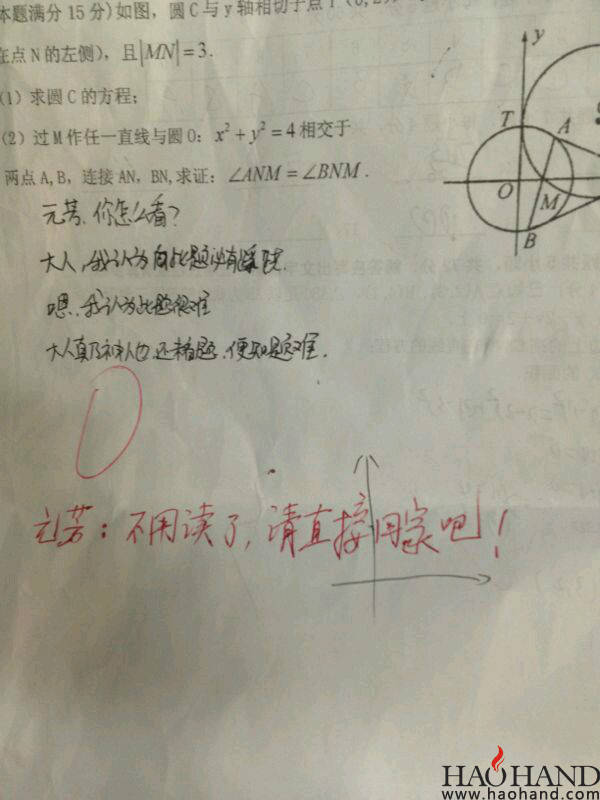 本题满分15分)如图,圆C与y轴相切于点T(0,2),
在点N的左侧),且|MN|=3.
(1)求圆C的方程;
(2)过M作任一直线与圆O:x²+y²=4相交于
两点A,B,连接AN,BN,求证:∠ANM=∠BNM.
y
T
A
O
M
B
元芳,你怎么看?
大人,我认为此题必有蹊跷.
嗯,我认为此题很难
大人真乃神人也,还看题,便知题难.
0
元芳:不用读了,请直接回家吧!
HAOHAND
www.haohand.com